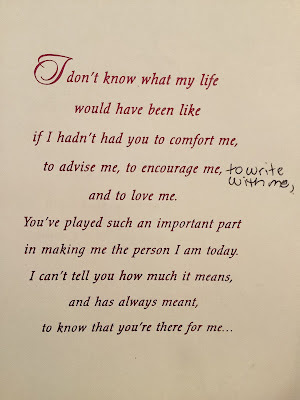 I don't know what my life
would have been like
if I hadn't had you to comfort me,
to advise me, to encourage me, to write
with me,
and to love me.
You've played such an important part
in making me the person I am today.
I can't tell you how much it means,
and has always meant,
to know that you're there for me...